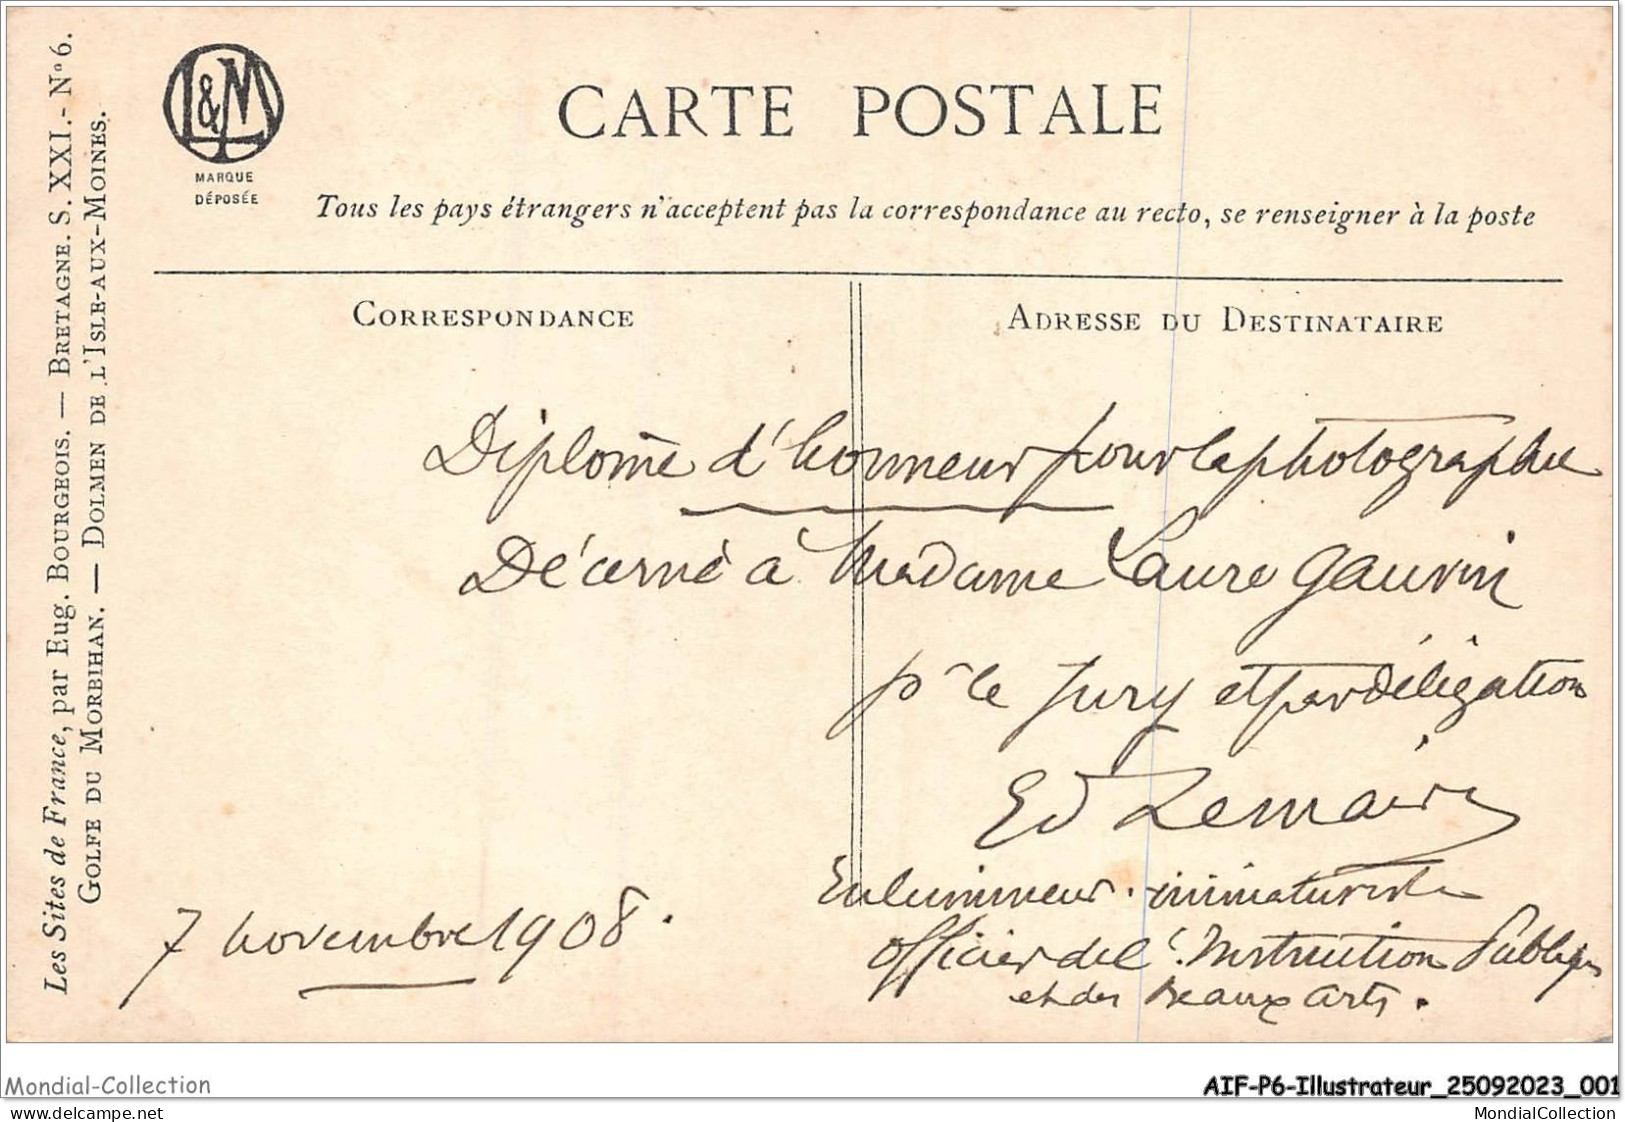 Les Sites de France, par Eug. Bourgeois. — Bretagne. S. XXI. - Nº 6.
Golfe du Morbihan. — Dolmen de l'Isle-aux-Moines.
L&M
MARQUE
DÉPOSÉE
CARTE POSTALE
Tous les pays étrangers n'acceptent pas la correspondance au recto, se renseigner à la poste
Correspondance
Adresse du Destinataire
Diplôme d'honneur pour la photographie
Décerné à Madame Laure Gauvin
pr le Jury et par délégation
Ed Lemaire
Enlumineur. miniaturiste
officier de l'Instruction Publique
et des Beaux Arts.
7 novembre 1908.
Mondial-Collection
AIF-P6-Illustrateur_25092023_001
delcampe.net
MondialCollection